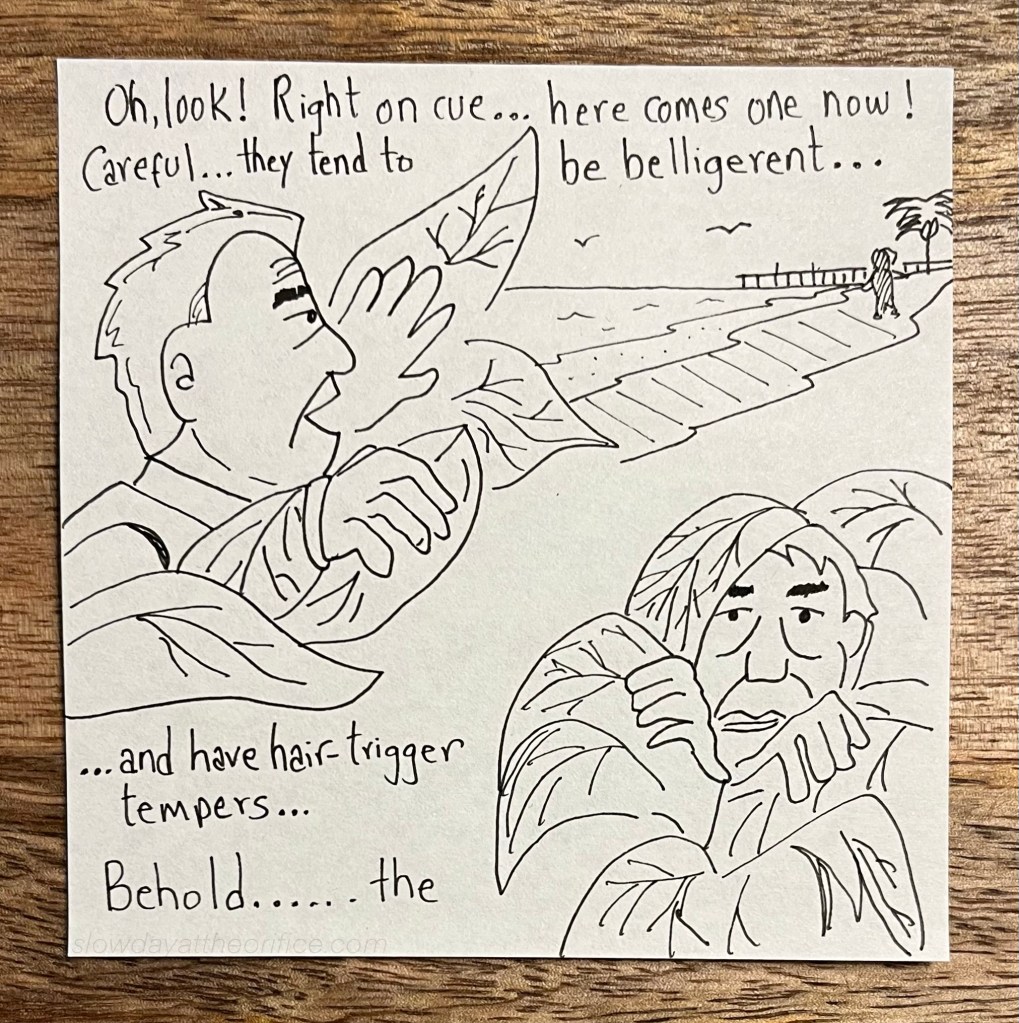 Oh, look! Right on cue... here comes one now!
Careful... they tend to be belligerent...
...and have hair-trigger
tempers...
Behold...... the
slowdayattheorifice.com